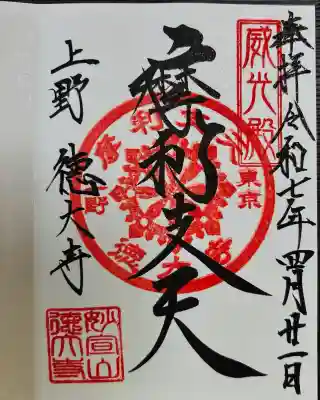 奉拝令和七年四月廿一日
威光殿
摩利支天
東京
上野
德大寺
妙宣山
德大寺